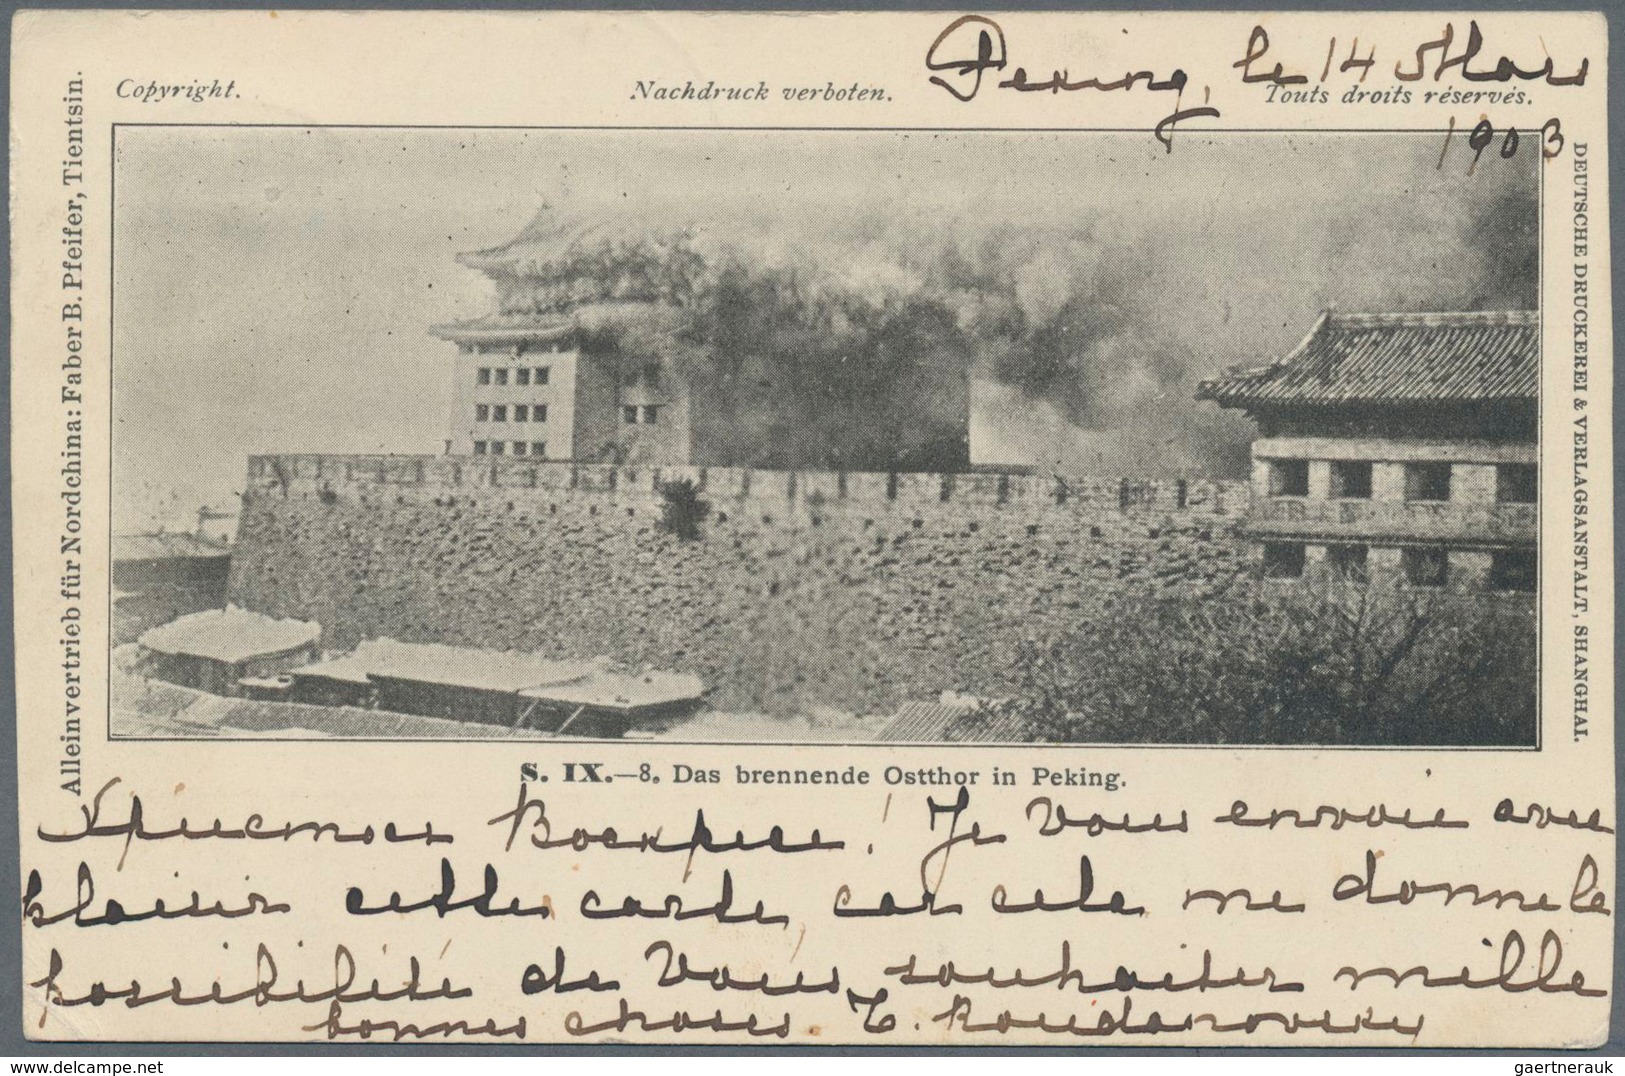 Copyright.
Nachdruck verboten.
Touts droits réservés.
Peking, le 14 Mars
1903
Alleinvertrieb für Nordchina: Faber B. Pfeifer, Tientsin.
DEUTSCHE DRUCKEREI & VERLAGSANSTALT, SHANGHAI.
S. IX.—8. Das brennende Ostthor in Peking.
Христосъ Воскресе! Je vous envoie avec
plaisir cette carte, car cela me donne la
possibilité de Vous souhaiter mille
bonnes choses.
delcampe.net
gaertnerauk